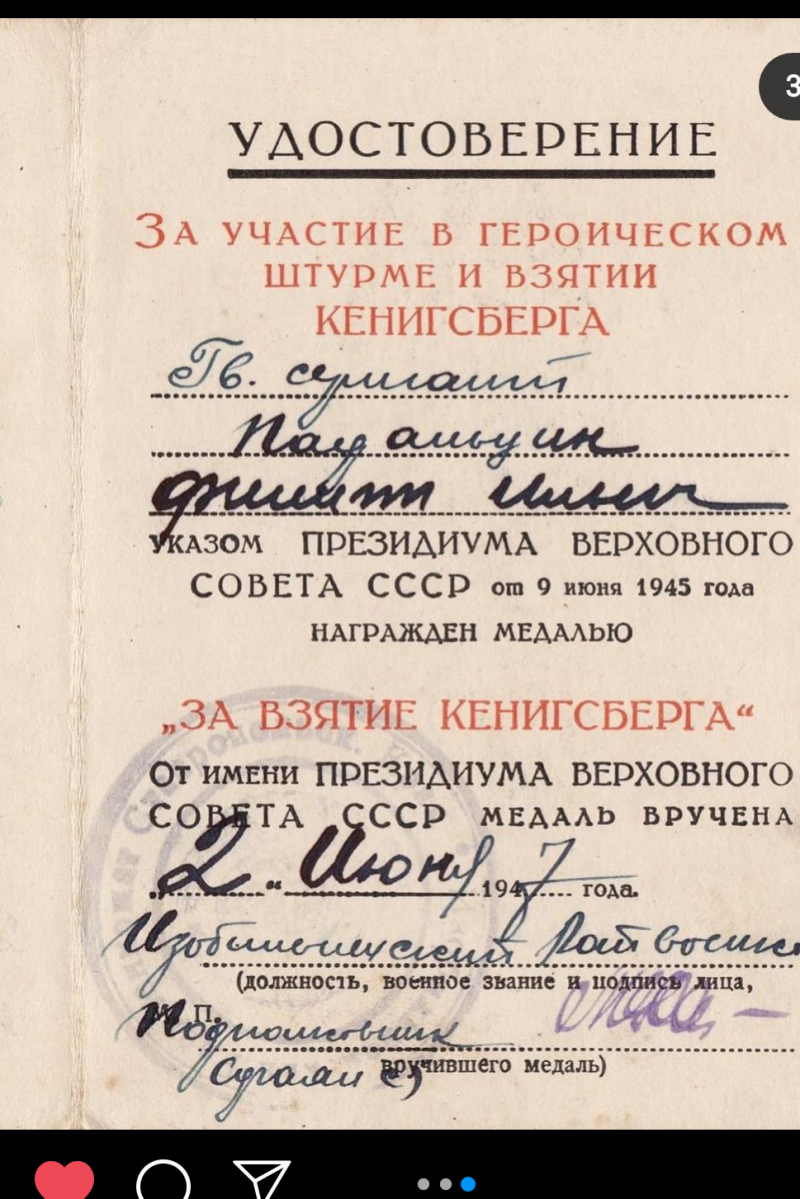 3
УДОСТОВЕРЕНИЕ
ЗА УЧАСТИЕ В ГЕРОИЧЕСКОМ
ШТУРМЕ И ВЗЯТИИ
КЕНИГСБЕРГА
Гв. сержант
Филипп Ильич
УКАЗОМ ПРЕЗИДИУМА ВЕРХОВНОГО
СОВЕТА СССР от 9 июня 1945 года
НАГРАЖДЕН МЕДАЛЬЮ
„ЗА ВЗЯТИЕ КЕНИГСБЕРГА“
ОТ ИМЕНИ ПРЕЗИДИУМА ВЕРХОВНОГО
СОВЕТА СССР МЕДАЛЬ ВРУЧЕНА
„2“ Июня 1947 года.
Изобильненский Рай военк
(должность, военное звание и подпись лица,
М. П.
Подполковник
вручившего медаль)